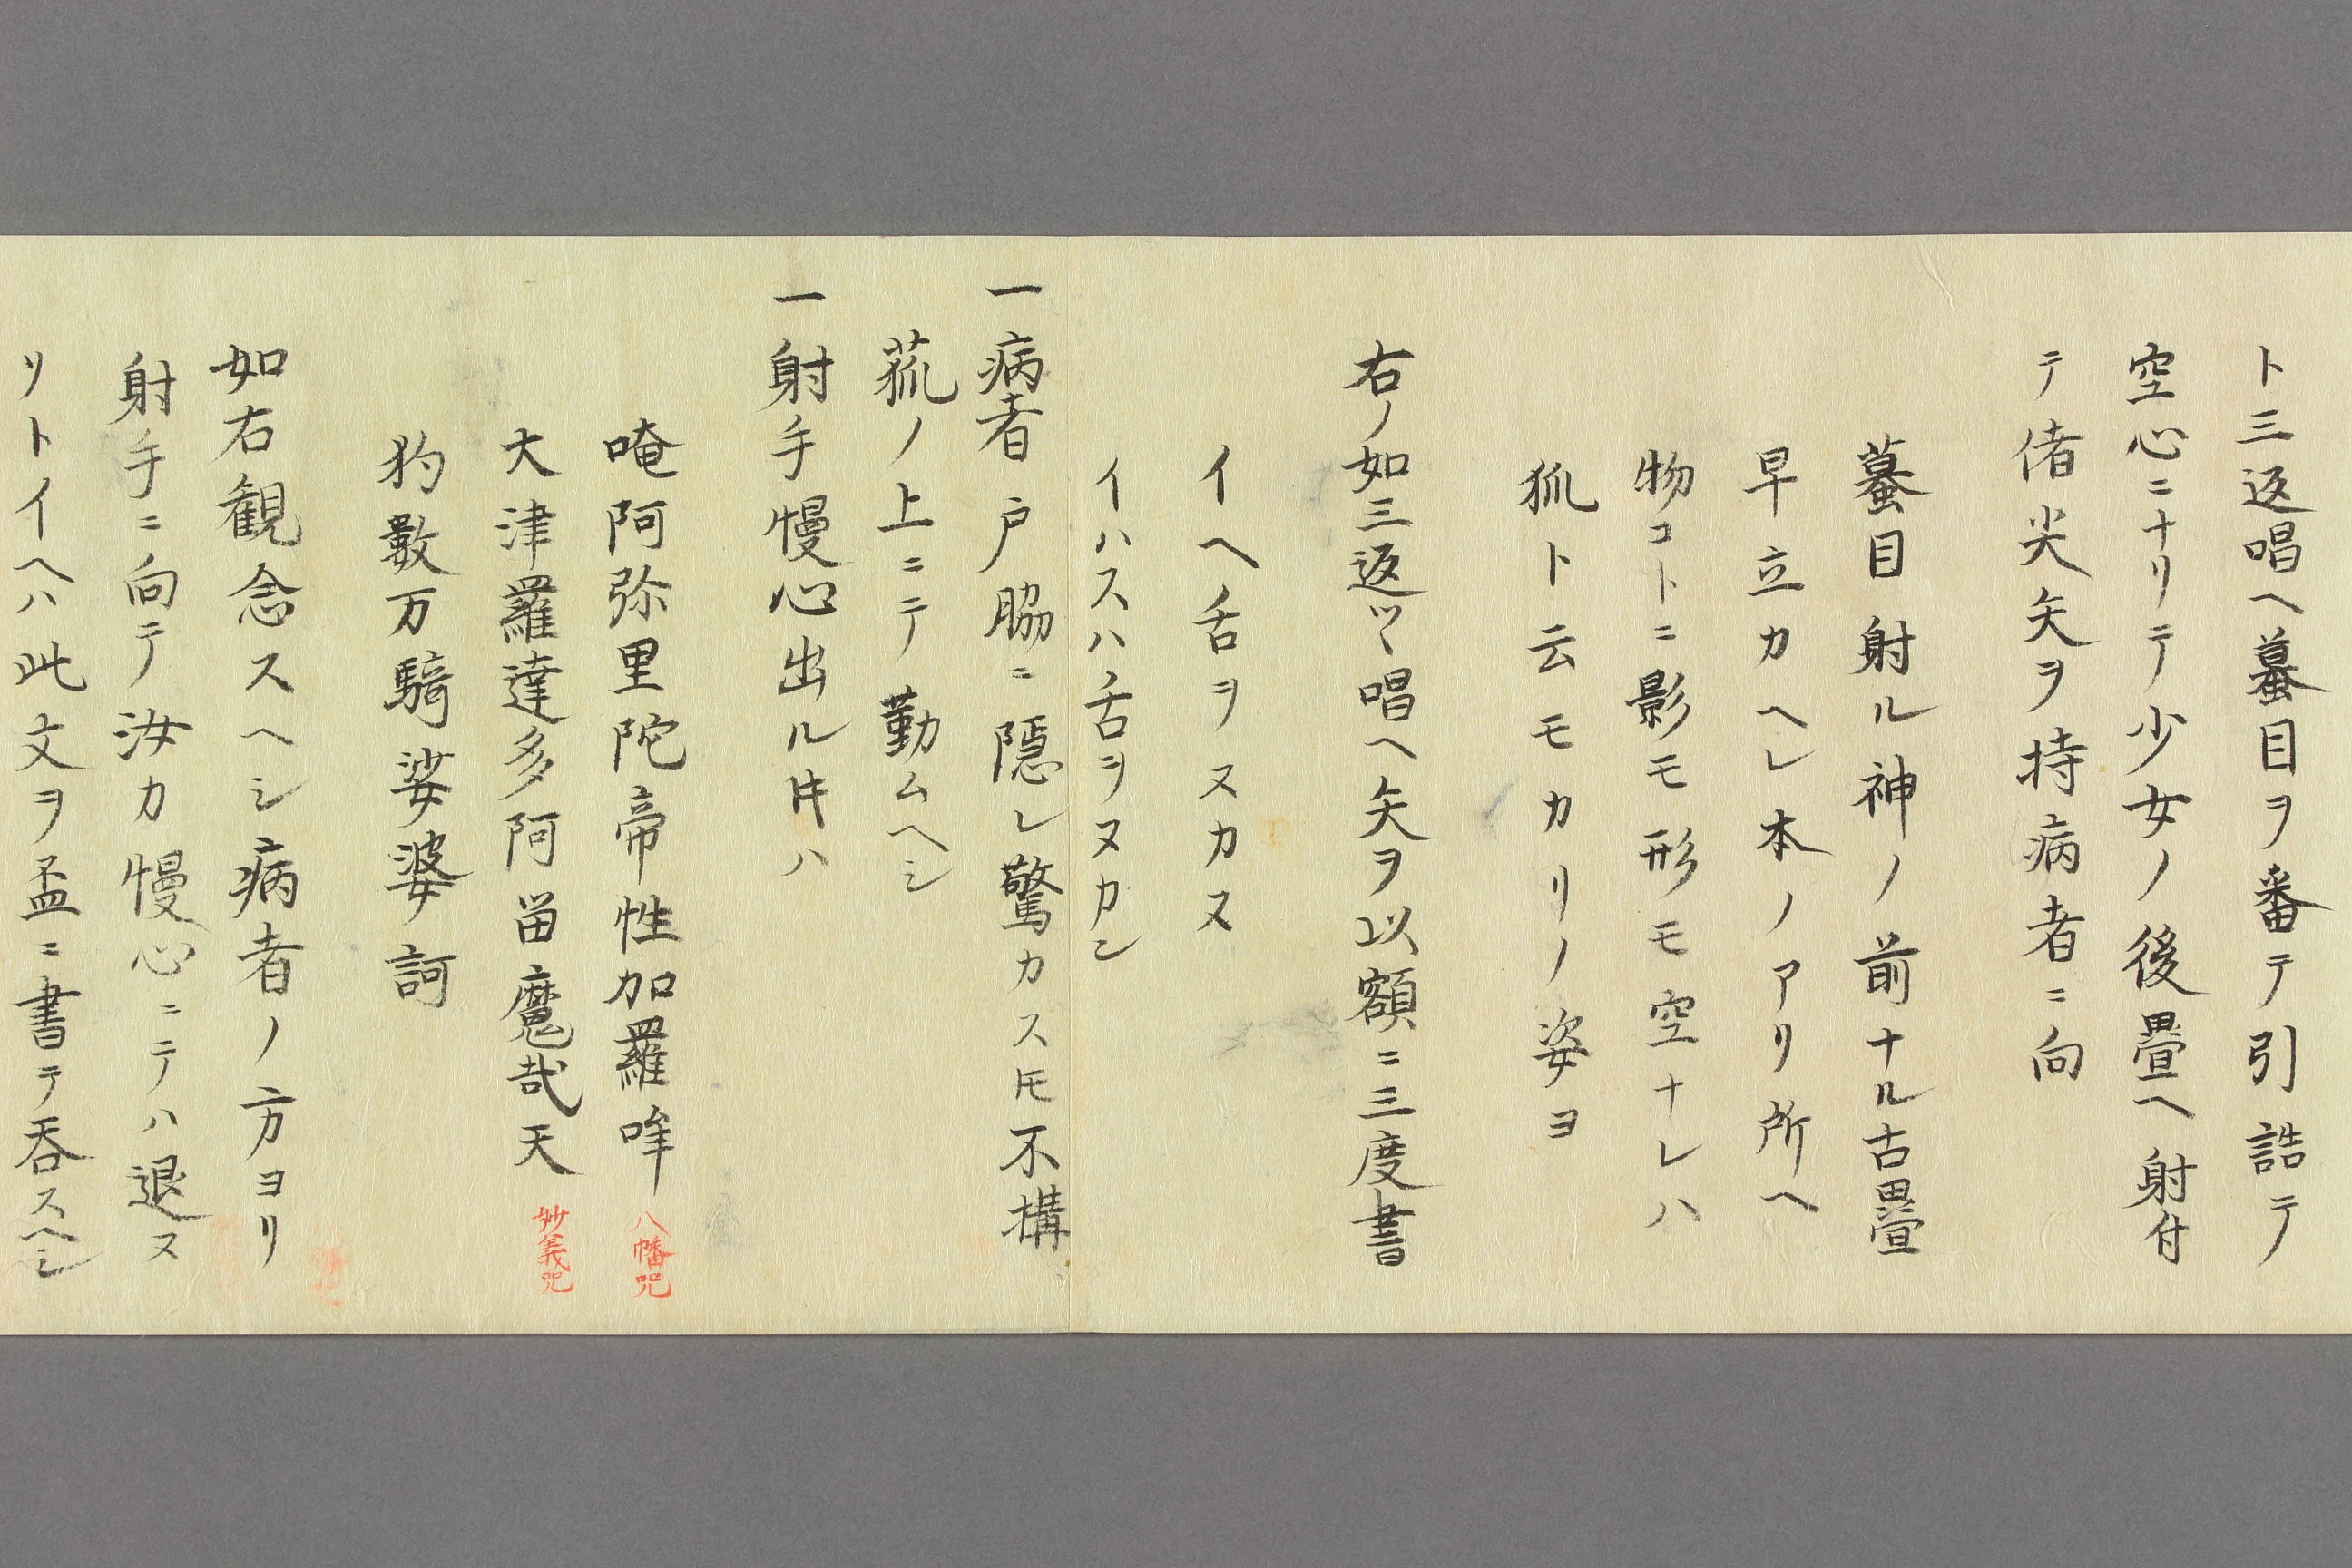 ト三返唱ヘ蟇目ヲ番テ引誥テ
空心ニナリテ少女ノ後畳ヘ射付
テ偖尖矢ヲ持病者ニ向
蟇目射ル神ノ前ナル古畳
早立カヘレ本ノアリ所ヘ
物コトニ影モ形モ空ナレハ
狐ト云モカリノ姿ヨ
右ノ如三返ツヽ唱ヘ矢ヲ以額ニ三度書
イヘ舌ヲヌカヌ
イハスハ舌ヲヌカン
一病者戸脇ニ隠レ驚カスモ不構
菰ノ上ニテ勤ムヘシ
一射手慢心出ル時ハ
唵阿弥里陀帝性加羅哞 八幡咒
大津羅達多阿畄魔哉天 妙義咒
犳數万騎娑婆訶
如右観念スヘシ病者ノ方ヨリ
射手ニ向テ汝カ慢心ニテハ退ヌ
リトイヘハ此文ヲ盃ニ書テ呑スヘシ